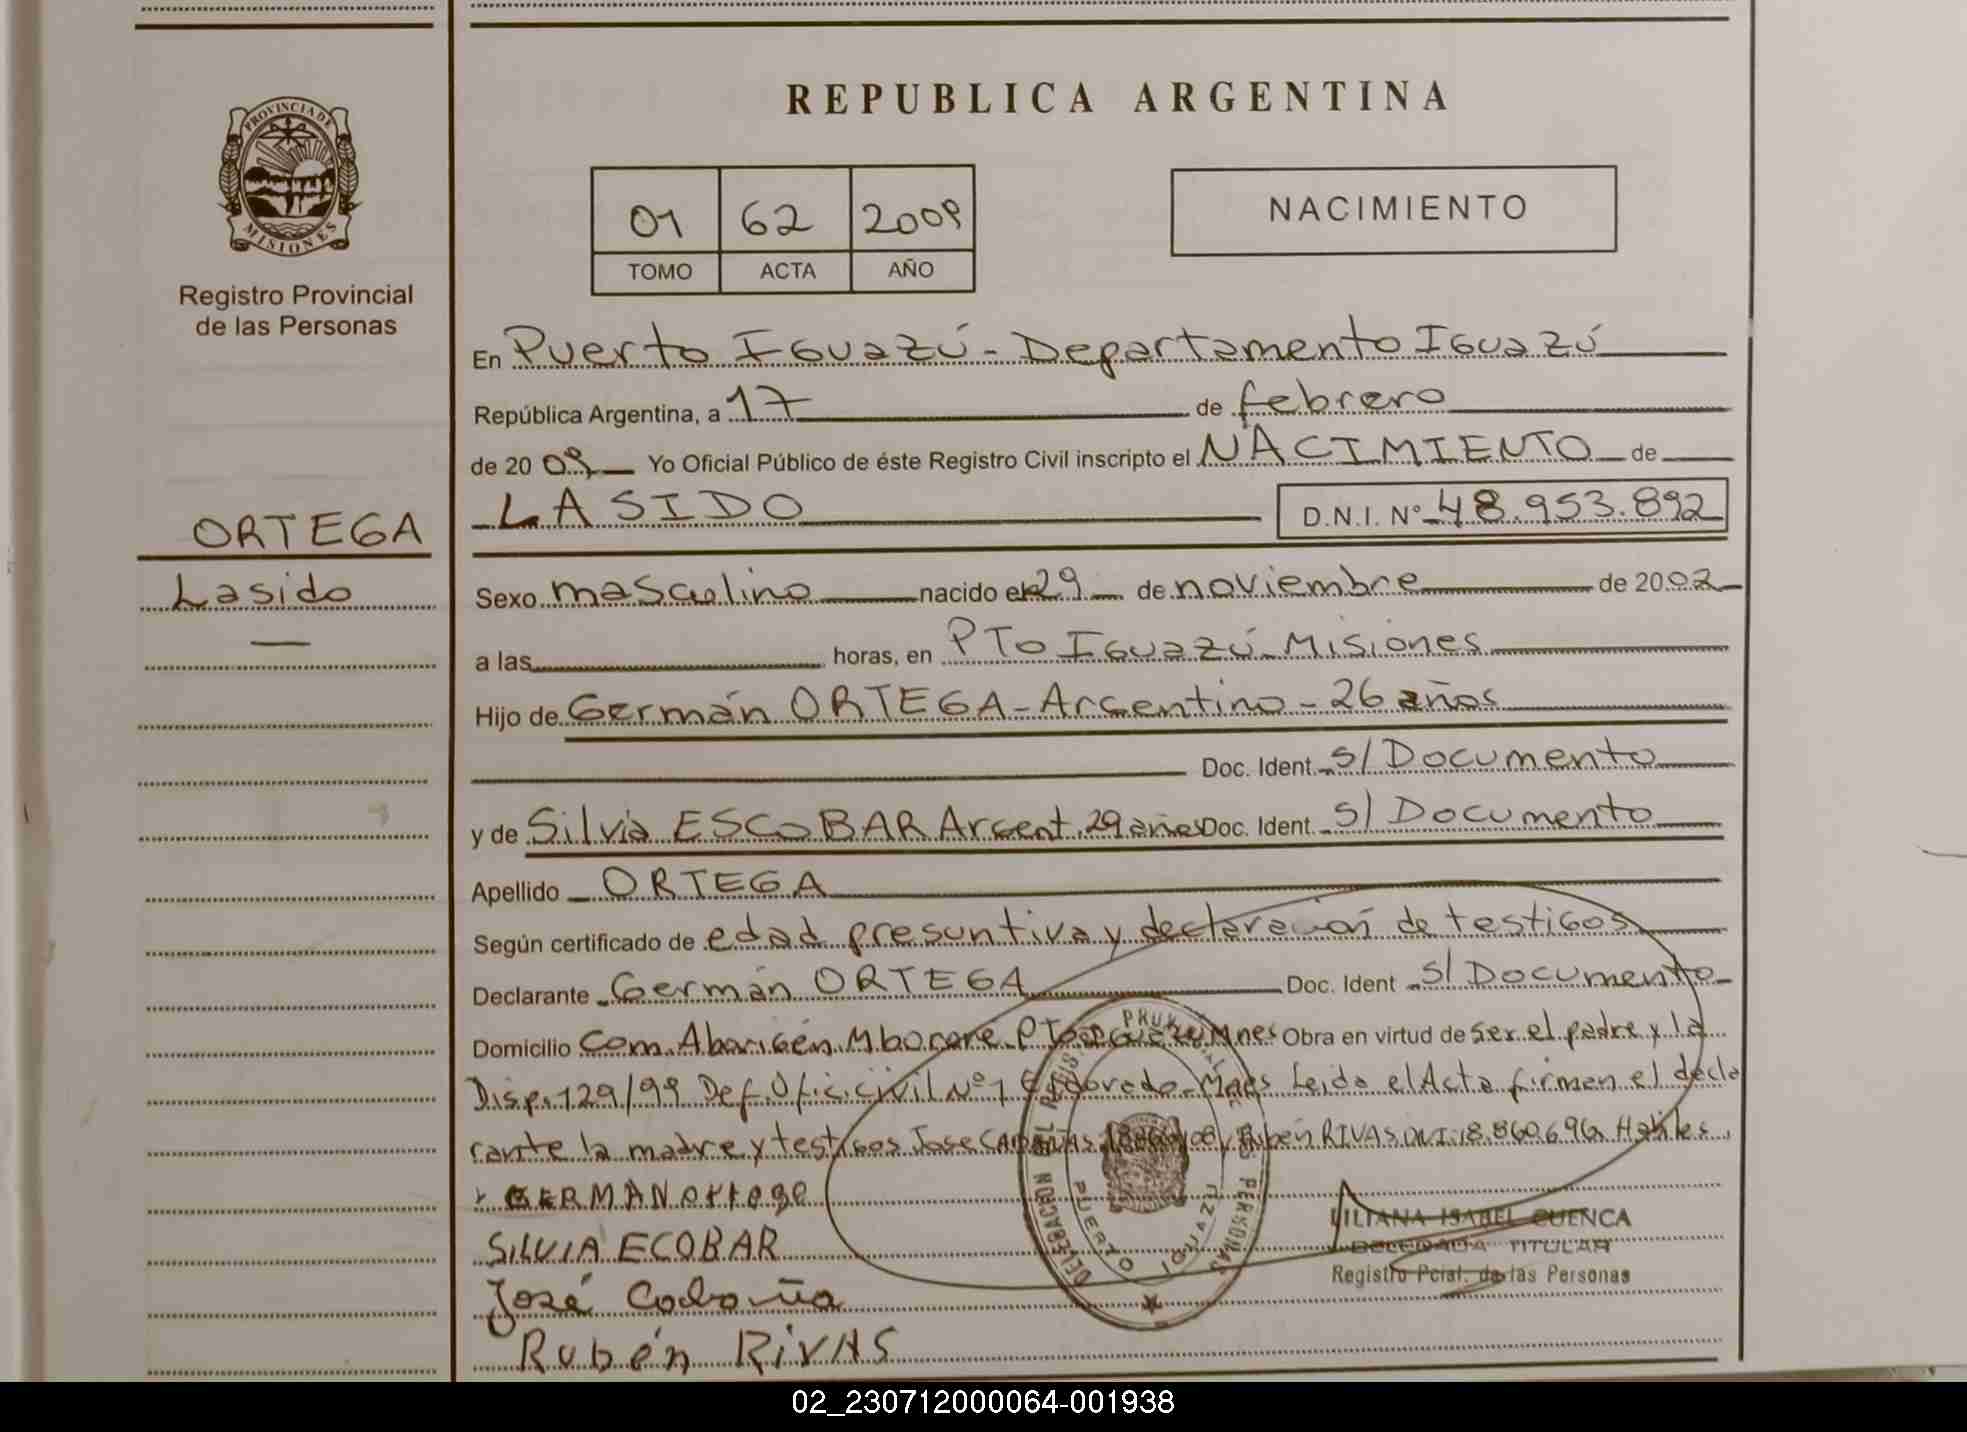 REPUBLICA ARGENTINA
PROVINCIA DE
MISIONES
Registro Provincial
de las Personas
01 62 2009
TOMO ACTA AÑO
NACIMIENTO
En Puerto Iguazú - Departamento Iguazú
República Argentina, a 17 de febrero
de 20 09 Yo Oficial Público de éste Registro Civil inscripto el NACIMIENTO de
LASIDO D.N.I. Nº 48.953.892
ORTEGA
Lasido
Sexo masculino nacido el 29 de noviembre de 2002
a las horas, en PTo Iguazú - Misiones
Hijo de Germán ORTEGA - Argentino - 26 años
Doc. Ident. s/ Documento
y de Silvia ESCOBAR Argent. 29 años Doc. Ident. s/ Documento
Apellido ORTEGA
Según certificado de edad presuntiva y declaración de testigos
Declarante Germán ORTEGA Doc. Ident s/ Documento
Domicilio Com. Aborigen Mbororé PTo Iguazú Mnes Obra en virtud de ser el padre y la
Disp. 129/99 Def. Ofic. civil Nº 1 Eldorado - Mnes Leida el Acta firman el decla
rante la madre y testigos José Rubén RIVAS DNI 18.860.696 Habiles.
GERMAN ortega
SILVIA ECOBAR
José
Rubén RIVAS
DELEGACION PUERTO IGUAZU
LILIANA ISABEL CUENCA
DELEGADA TITULAR
Registro Pcial. de las Personas
02_230712000064-001938